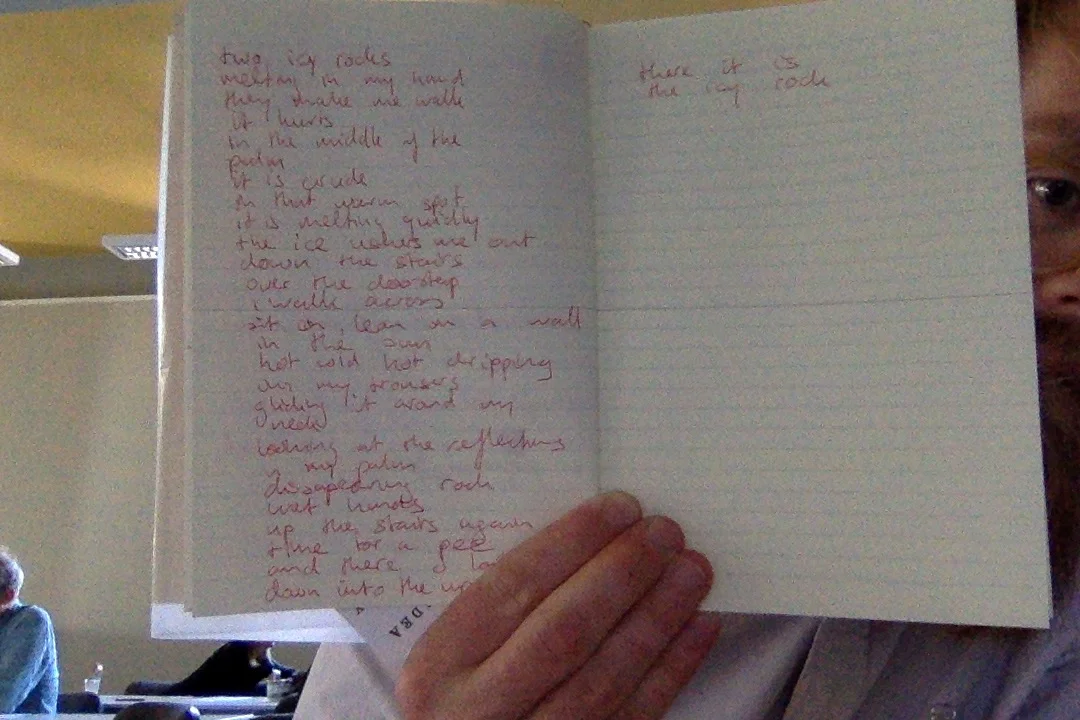 two icy rocks
melting in my hand
they make me walk
it hurts
in the middle of the
palm
it is crude
in that warm spot
it is melting quickly
the ice ushers me out
down the stairs
over the doorstep
i walk across
sit on, lean on a wall
in the sun
hot cold hot dripping
on my trousers
gliding it around my
neck
looking at the reflections
in my palm
disapearing rock
wet hands
up the stairs again
time for a pee
and there I
down into the
there it is
the icy rock
DEA